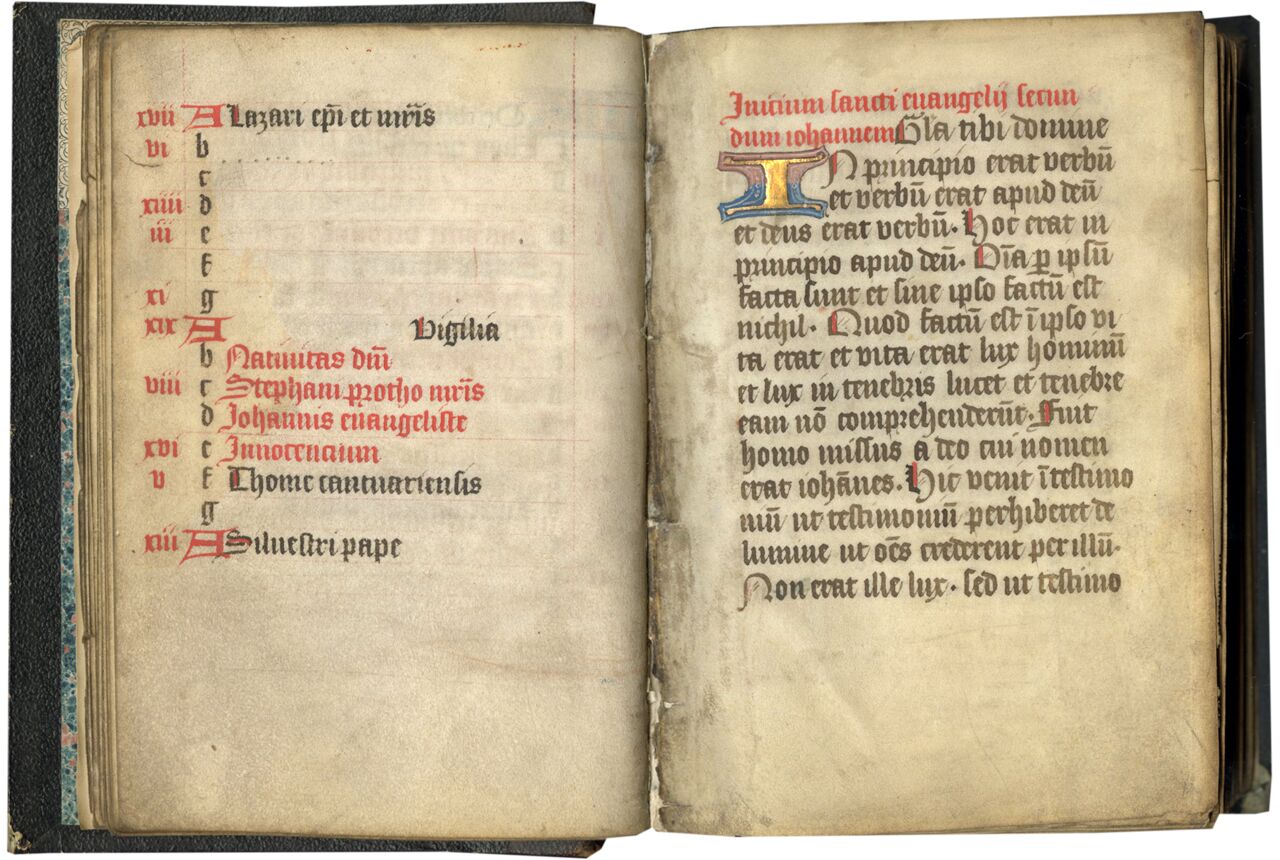 xvii A Lazari ep̄i et mr̄is
vi b
c
xiiii d
iii e
f
xi g
xix A Vigilia
b Natiuitas dn̄i
viii c Stephani protho mr̄is
d Johannis euangeliste
xvi e Innocencium
v f Thome cantuariensis
g
xiii A Siluestri pape
Inicium sancti euangelij secun
dum iohannem Gl̄a tibi domine
IN principio erat verbū
et verbū erat apud deū
et deus erat verbū. Hoc erat in
principio apud deū. Om̄ia ꝑ ipsū
facta sunt et sine ipso factū est
nichil. Quod factū est ī ipso vi
ta erat et vita erat lux hominū
et lux in tenebris lucet et tenebre
eam nō comprehenderūt. Fuit
homo missus a deo cui nomen
erat iohānes. Hic venit ī testimo
niū ut testimoniū perhiberet de
lumine ut oēs crederent per illū.
Non erat ille lux. sed ut testimo